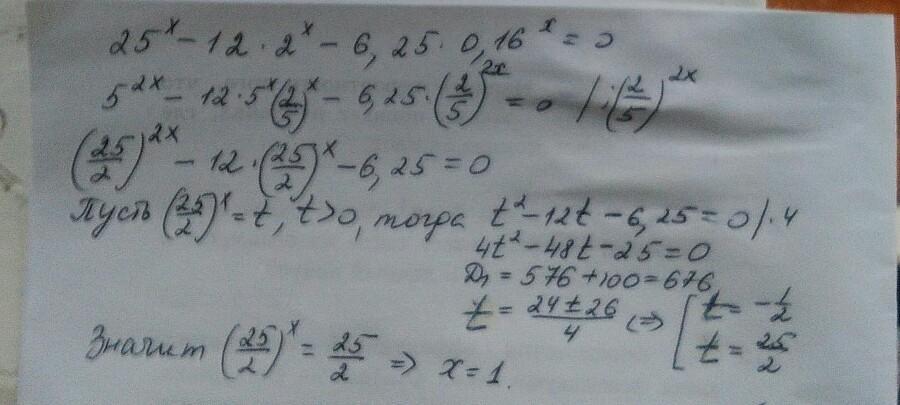 25^x − 12 · 2^x − 6,25 · 0,16^x = 0
5^{2x} − 12 · 5^x (2/5)^x − 6,25 · (2/5)^{2x} = 0 / : (2/5)^{2x}
(25/2)^{2x} − 12 · (25/2)^x − 6,25 = 0
Пусть (25/2)^x = t, t > 0, тогда t² − 12t − 6,25 = 0 / · 4
4t² − 48t − 25 = 0
D₁ = 576 + 100 = 676
t = (24 ± 26)/4 ⇔ [ t = −1/2
t = 25/2
Значит (25/2)^x = 25/2 ⇒ x = 1.